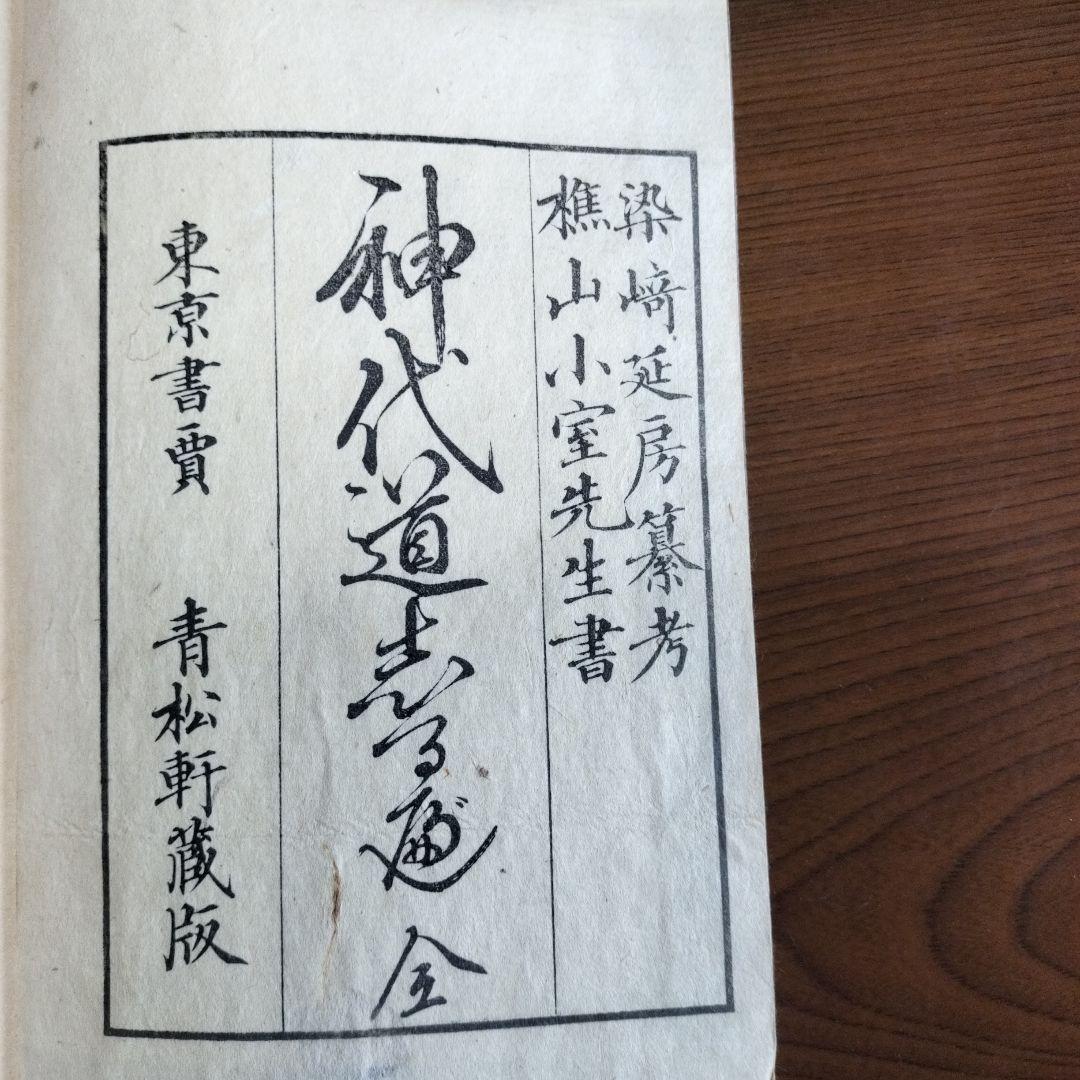 染﨑延房纂考
樵山小室先生書
神代道志る遍 全
東京書賈 青松軒蔵版